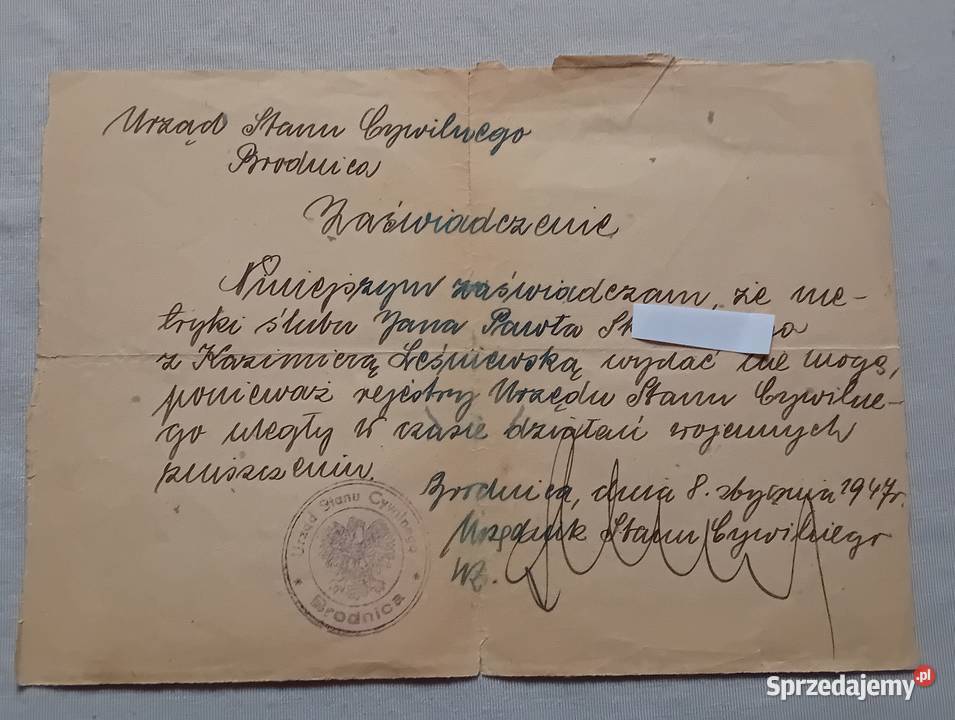 Urząd Stanu Cywilnego
Brodnica
Zaświadczenie
Niniejszym zaświadczam, że me-
tryki ślubu Jana Pawła St
z Kazimierą Leśniewską wydać nie mogę,
ponieważ rejestry Urzędu Stanu Cywilne-
go uległy w czasie działań wojennych
zniszczeniu.
Brodnica, dnia 8. stycznia 1947r.
Urzędnik Stanu Cywilnego
wz.
Urząd Stanu Cywilnego
* Brodnica *
Sprzedajemy.pl